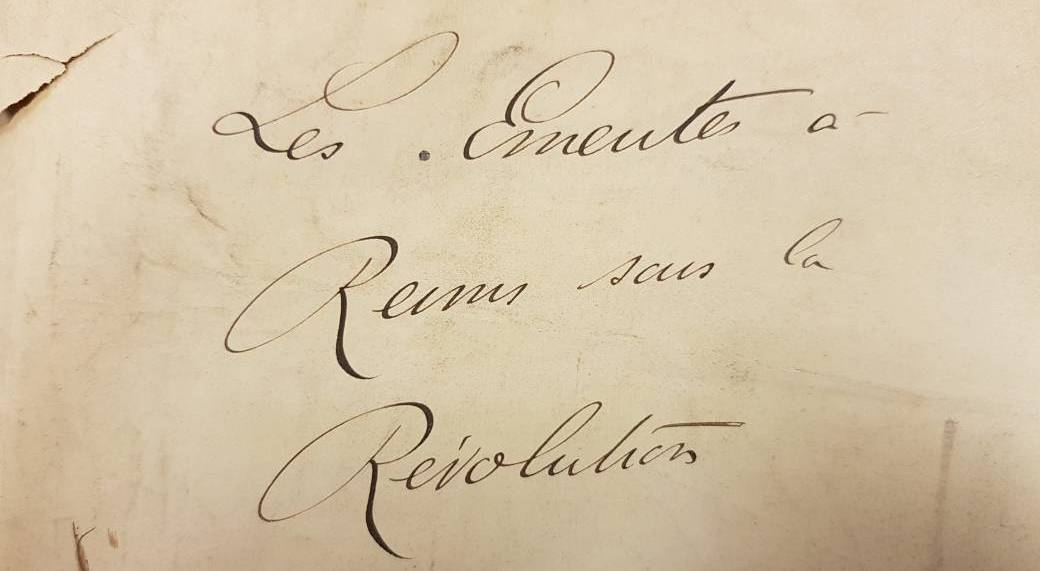 Les Emeutes à
Reims sous la
Révolution